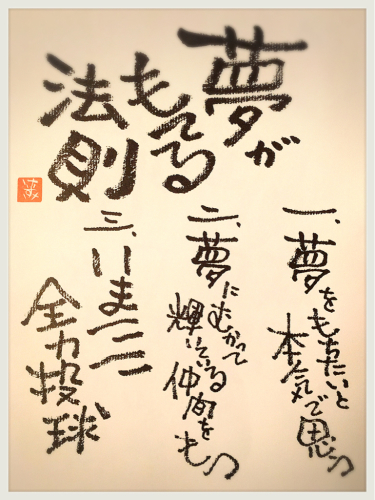 夢が
もてる
法則
一、夢をもちたいと
本気で思う
二、夢にむかって
輝いている
仲間をもつ
三、いまここ
全力投球